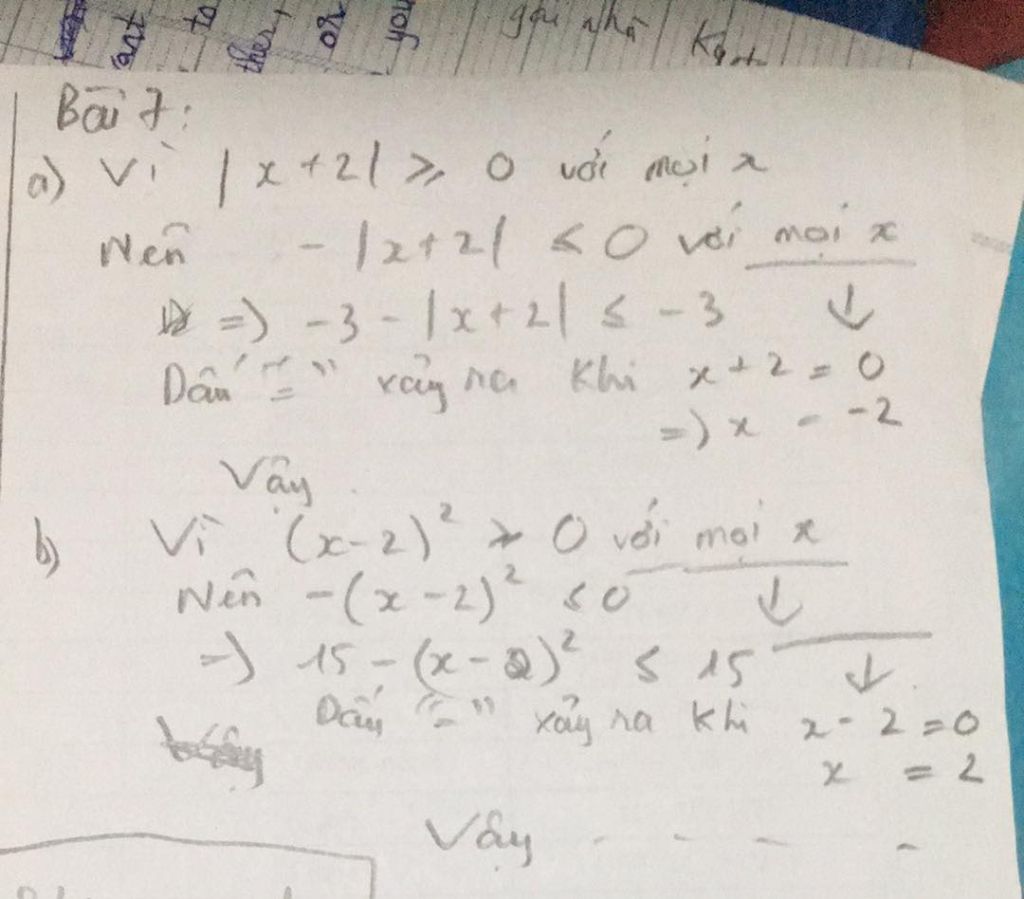 cant to ther or you gái nhà
Bài 7:
a) Vì |x+2| ⩾ 0 với mọi x
Nên -|x+2| ≤ 0 với mọi x
=) -3 - |x+2| ≤ -3 ↓
Dấu "=" xảy ra khi x+2 = 0
=) x = -2
Vậy
b) Vì (x-2)² ⩾ 0 với mọi x
Nên -(x-2)² ≤ 0 ↓
=) 15 - (x-2)² ≤ 15 ↓
Dấu "=" xảy ra khi x - 2 = 0
x = 2
Vậy - - - -